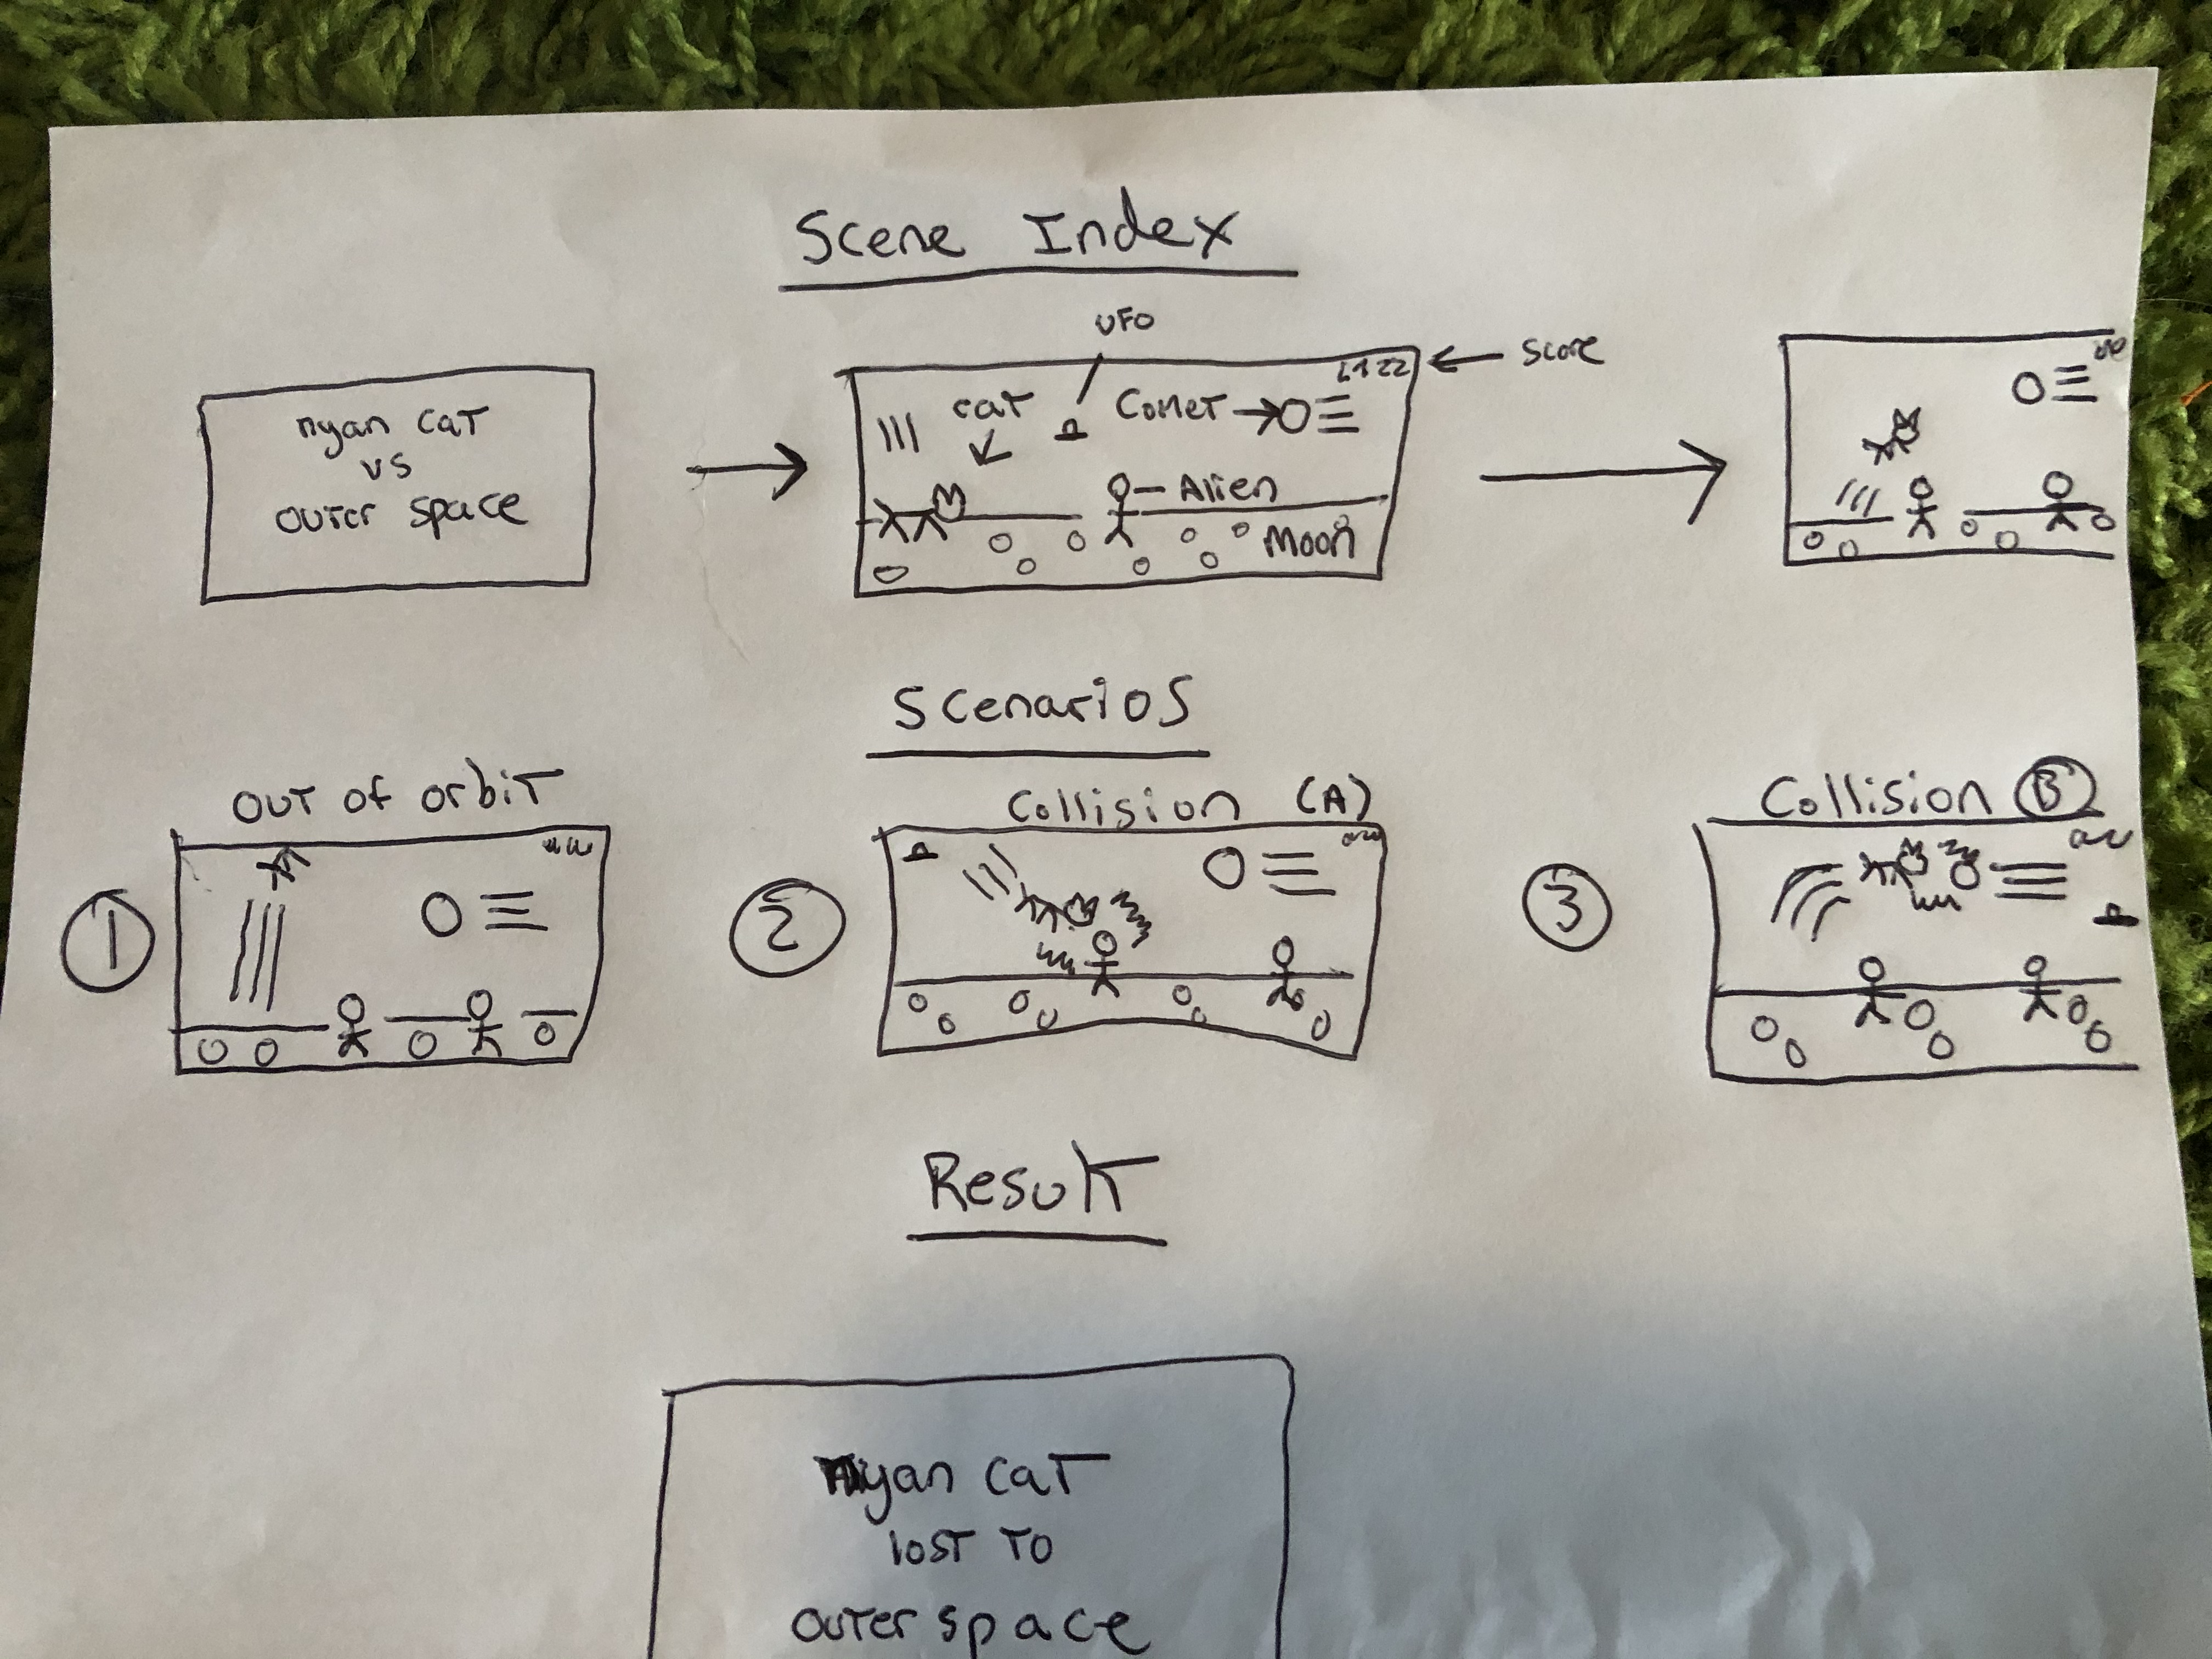 Scene Index
nyan cat
vs
outer space
UFO
cat
Comet
Alien
Moon
score
Scenarios
1
out of orbit
2
Collision (A)
3
Collision B
Result
nyan cat
lost to
outer space